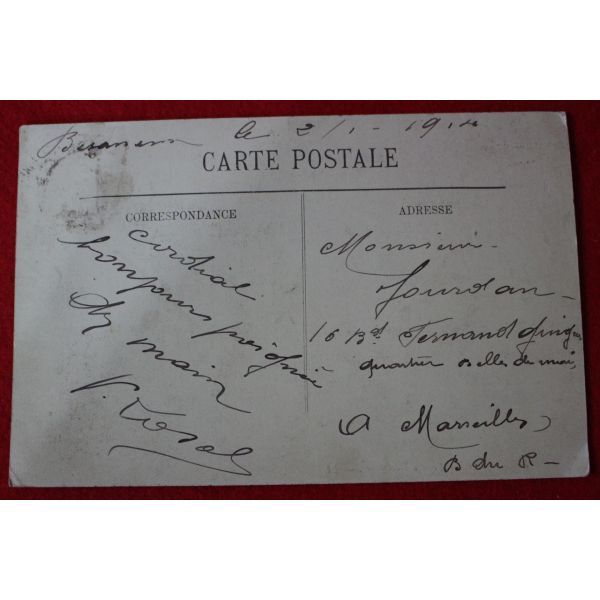 Besançon le 2/1 - 1914
CARTE POSTALE
CORRESPONDANCE
cordial
bonjours poignée
de main
ADRESSE
Monsieur
Jourdan
16 Bd Fernand
quartier Belle de mai
A Marseille
B du R